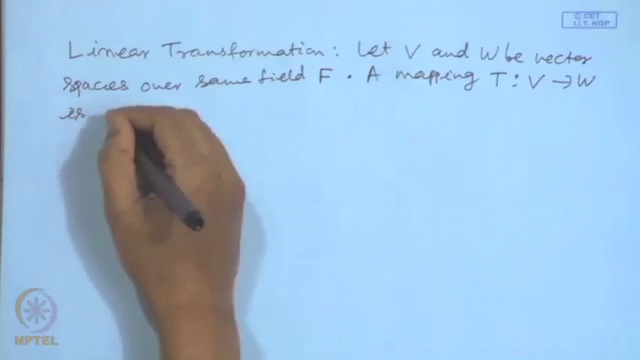 © CET
I.I.T. KGP
Linear Transformation: Let V and W be vector
spaces over same field F. A mapping T: V → W
is
NPTEL